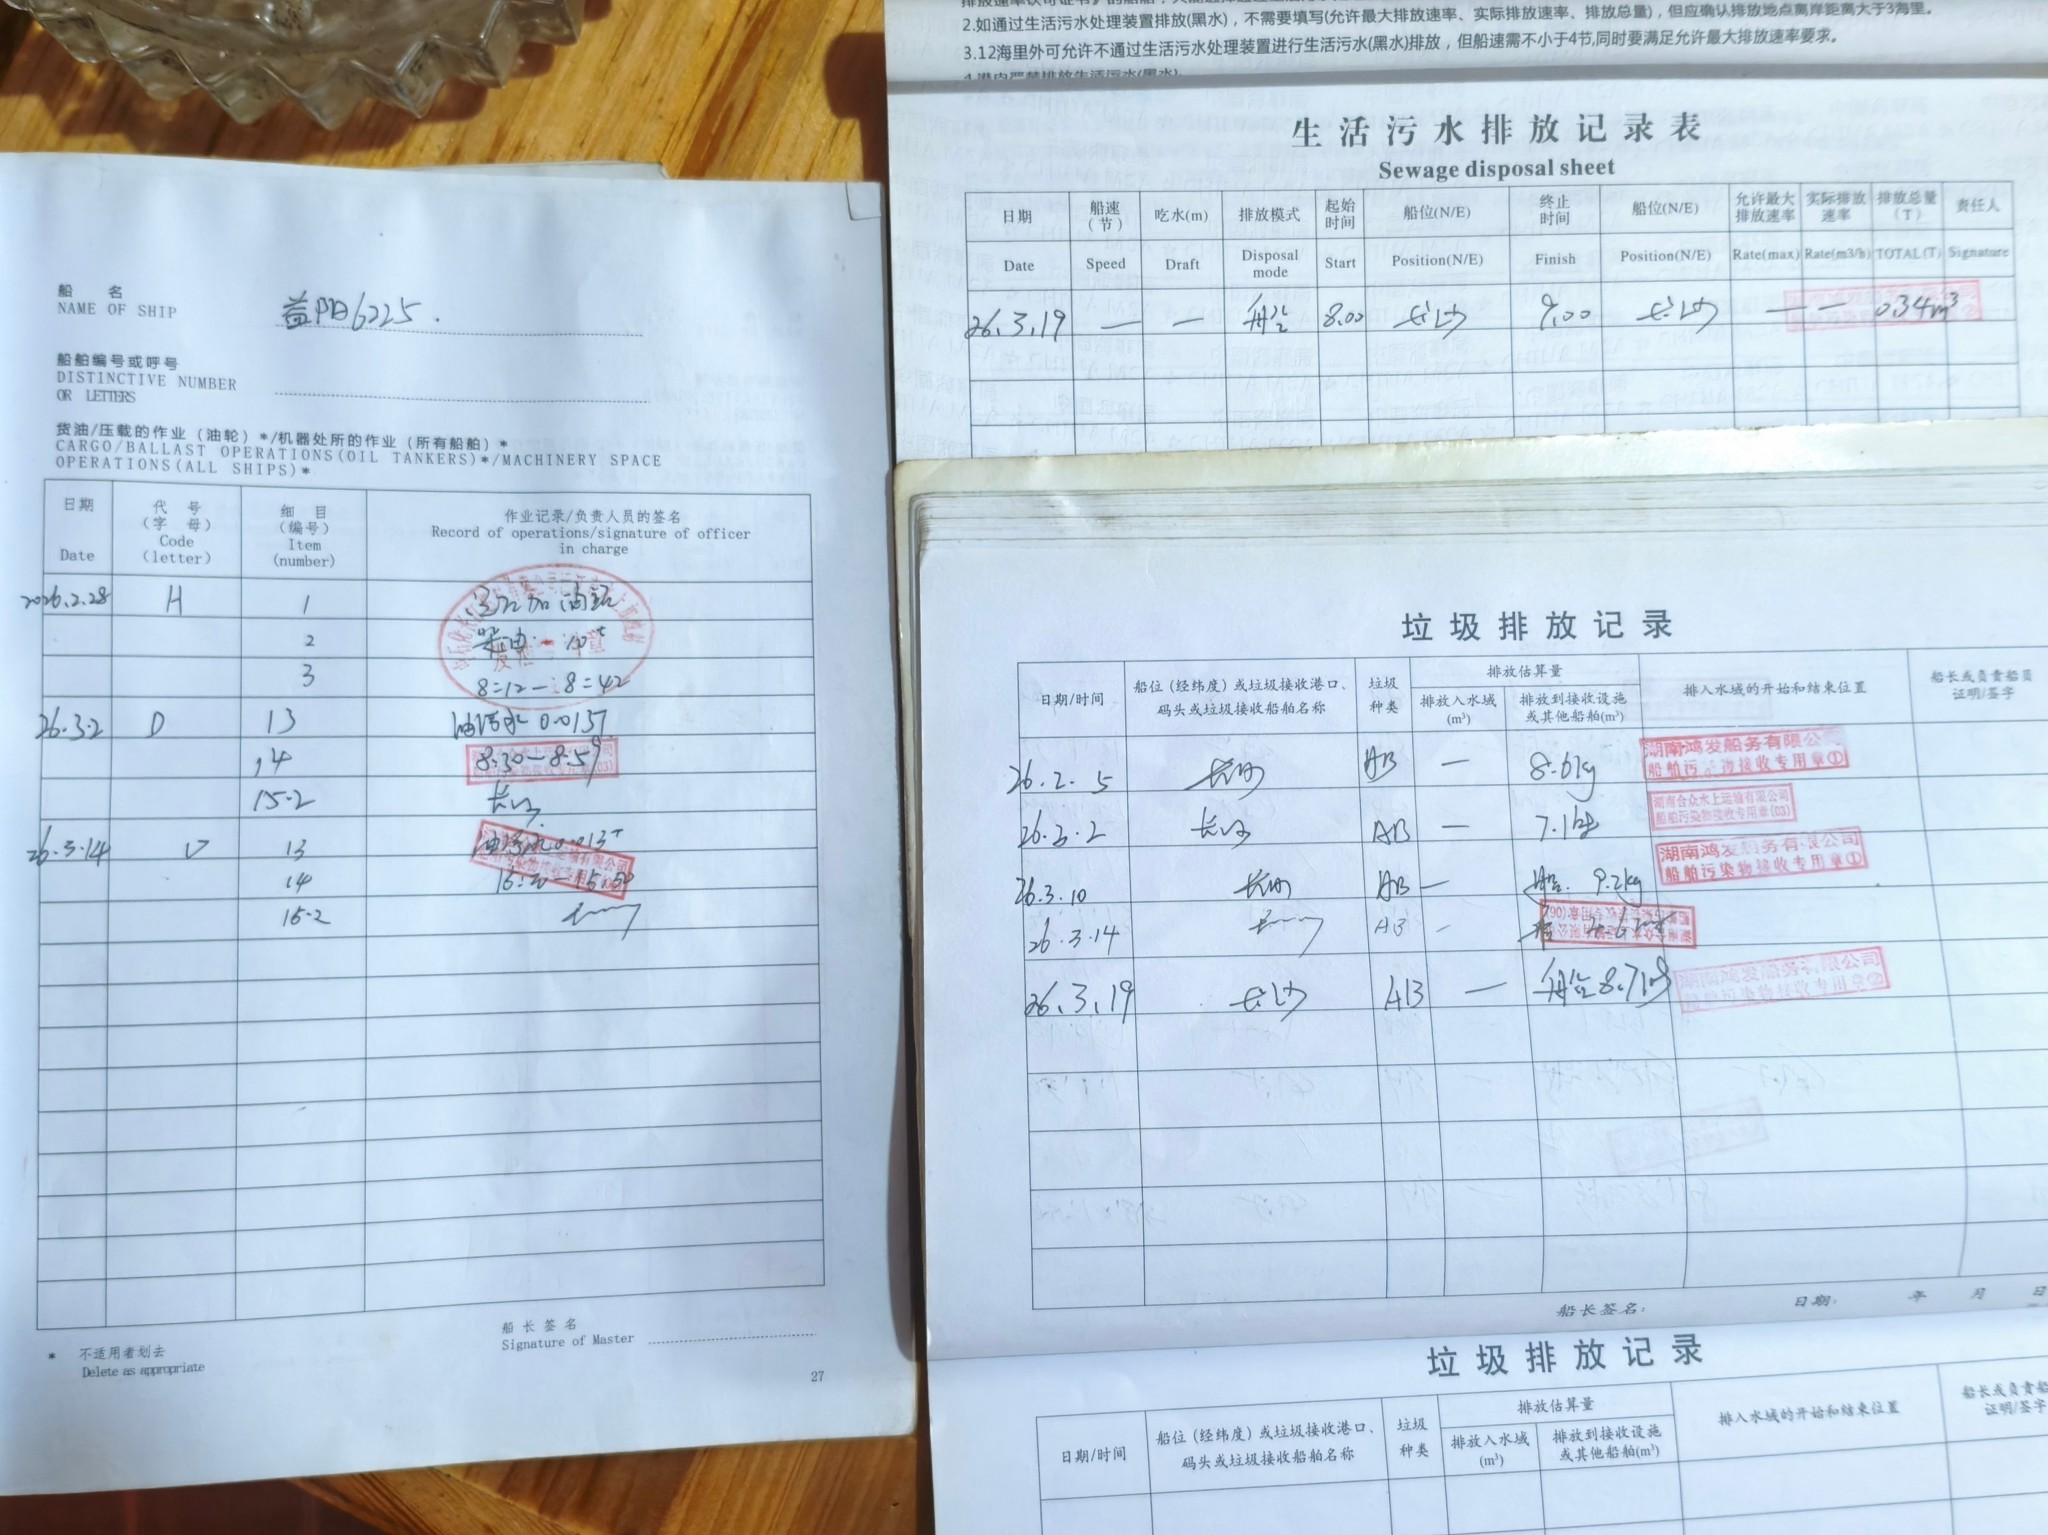 船 名
NAME OF SHIP
益阳6225.
船舶编号或呼号
DISTINCTIVE NUMBER
OR LETTERS
货油/压载的作业（油轮）*/机器处所的作业（所有船舶）*
CARGO/BALLAST OPERATIONS(OIL TANKERS)*/MACHINERY SPACE
OPERATIONS(ALL SHIPS)*
日期 代 号 细 目 作业记录/负责人员的签名
（字 母） （编号） Record of operations/signature of officer
Date Code Item in charge
(letter) (number)
2026.2.28 H 1 加油站
2 柴油 10t
3 8:12—8:42
26.3.2 D 13 油污水 0.0137
14 8:30—8:59
15.2 长沙
26.3.14 D 13 油污水0.013t
14
15.2 长沙
船 长 签 名
Signature of Master
* 不适用者划去
Delete as appropriate
27
2.如通过生活污水处理装置排放(黑水)，不需要填写(允许最大排放速率、实际排放速率、排放总量)，但应确认排放地点离岸距离大于3海里。
3.12海里外可允许不通过生活污水处理装置进行生活污水(黑水)排放，但船速需不小于4节,同时要满足允许最大排放速率要求。
生活污水排放记录表
Sewage disposal sheet
日期 船速（节） 吃水(m) 排放模式 起始时间 船位(N/E) 终止时间 船位(N/E) 允许最大排放速率 实际排放速率 排放总量（T） 责任人
Date Speed Draft Disposal mode Start Position(N/E) Finish Position(N/E) Rate(max) Rate(m3/h) TOTAL(T) Signature
26.3.19 — — 船 8.00 长沙 9.00 长沙 — — 0.34m³
垃圾排放记录
日期/时间 船位（经纬度）或垃圾接收港口、码头或垃圾接收船舶名称 垃圾种类 排放估算量 排入水域的开始和结束位置 船长或负责船员证明/签字
排放入水域(m³) 排放到接收设施或其他船舶(m³)
26.2.5 长沙 AB — 8.6kg 湖南鸿发船务有限公司
船舶污染物接收专用章①
26.3.2 长沙 AB — 7.1kg 湖南合众水上运输有限公司
船舶污染物接收专用章(03)
26.3.10 长沙 AB — 9.2kg 湖南鸿发船务有限公司
船舶污染物接收专用章①
26.3.14 长沙 AB —
26.3.19 长沙 AB — 8.7kg 湖南鸿发船务有限公司
船舶污染物接收专用章②
船长签名： 日期： 年 月 日
垃圾排放记录
日期/时间 船位（经纬度）或垃圾接收港口、码头或垃圾接收船舶名称 垃圾种类 排放估算量 排入水域的开始和结束位置 船长或负责船
证明/签字
排放入水域(m³) 排放到接收设施或其他船舶(m³)